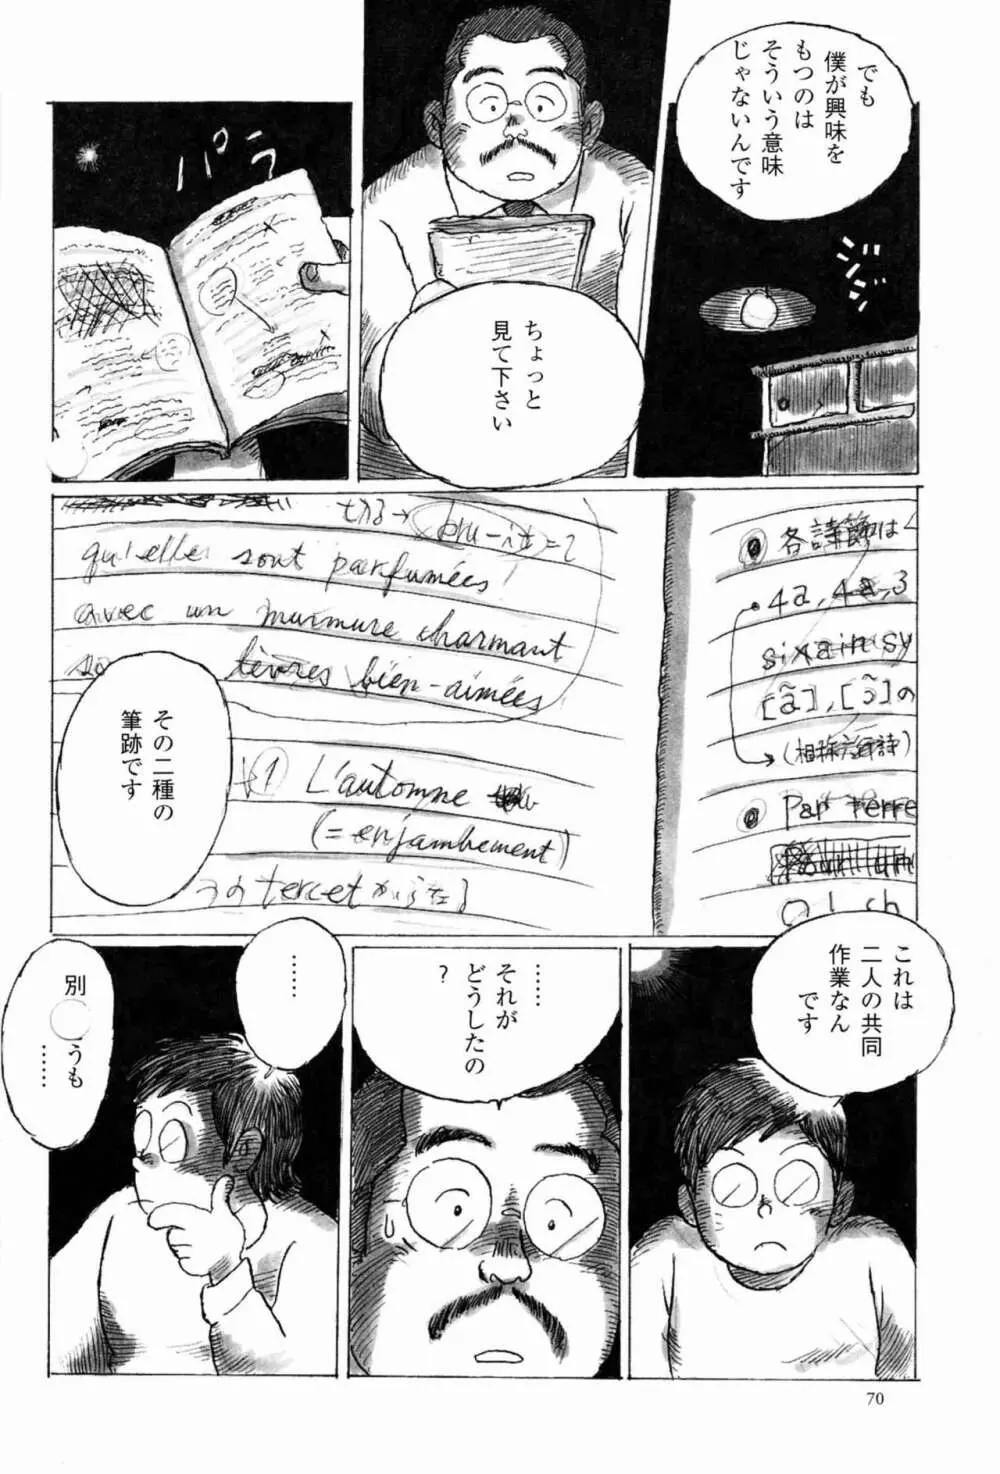 でも
僕が興味を
もつのは
そういう意味
じゃないんです
ジジ
ちょっと
見て下さい
パラ
各詩節は
4a, 4a, 3
sixain sy
[ã], [ɔ̃]の
(相称六行詩)
Par terre
bru-it=2
qu'elles sont parfumées
avec un murmure charmant
lèvres bien-aimées
1 L'automne
(=enjambement)
tercet
その二種の
筆跡です
これは
二人の共同
作業なん
です
……
それが
どうしたの
?
……
別
うも
……
70